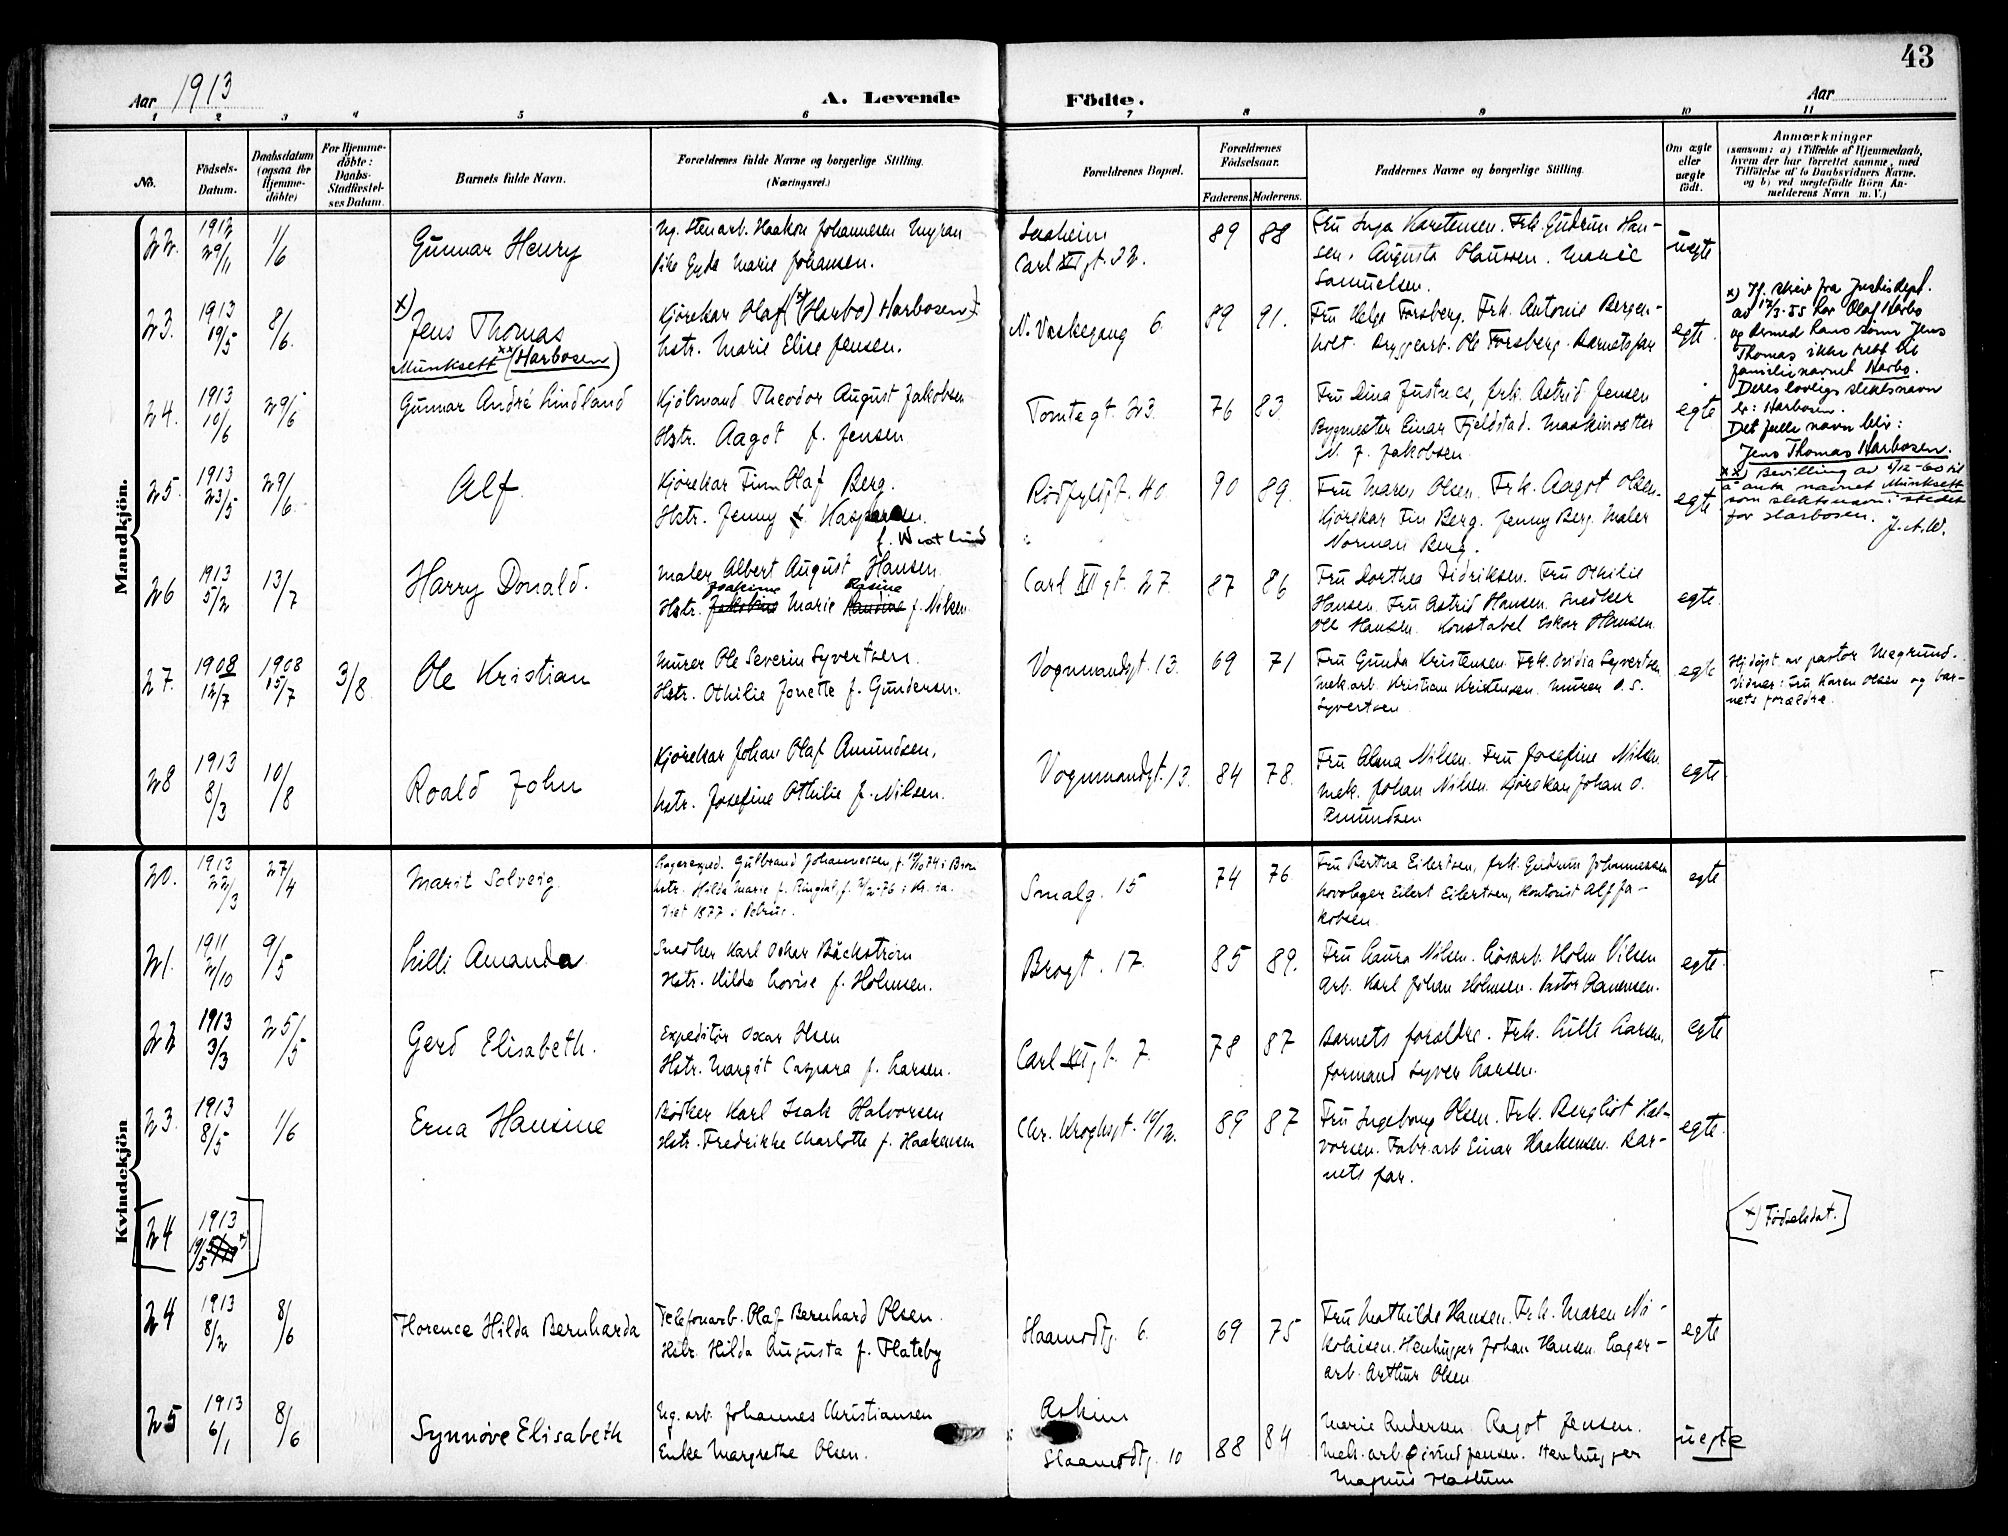 43
Aar 1913
A. Levende Födte.
Aar
1 2 3 4 5 6 7 8 9 10 11
No.
Födsels-Datum.
Daabsdatum (ogsaa for Hjemme-döbte)
For Hjemme-döbte: Daabs-Stadfæstel-ses Datum.
Barnets fulde Navn.
Forældrenes fulde Navne og borgerlige Stilling. (Næringsvei.)
Forældrenes Bopæl.
Forældrenes Födselsaar.
Faderens. Moderens.
Faddernes Navne og borgerlige Stilling.
Om ægte eller uægte födt.
Anmærkninger
(saasom: a) i Tilfælde af Hjemmedaab, hvem der har forrettet samme, med Tilföielse af to Daabsvidners Navne, og b) ved uægtefödte Börn An-melderens Navn m. V.)
Mandkjön.
22. 1912 29/11 1/6 Gunnar Henry
Ug. Stenarb. Haakon Johannesen Myran
Pike Gyda Marie Johansen.
Carl XII gt. 22. 89 88
Fru Inga Karstensen. Frk. Gudrun Han-
sen. Augusta Olaussen. Marie
Samuelsen.
uegte
23. 1913 19/5 8/6 x) Jens Thomas
Munksett xx (Harbosen)
Kjörekar Olaf (x) (Harbo) Harbosen
hstr. Marie Elise Jensen.
N. Vaskegang 6. 89 91.
Fru Helga Forsberg. Frk. Antonie Bergen-
holt. Bryggearb. Ole Forsberg. Barnets far
egte
x) If. skriv fra Justisdept.
av 12/3-55 har Olaf Harbo
og dermed hans sönn Jens
Thomas ikke rett til
familienavnet Harbo.
Deres lovlige slektsnavn
er: Harbosen.
Det fulle navn blir:
Jens Thomas Harbosen.
xx) Bevilling av 1/12-60 til
å anta navnet Munksett
som slektsnavn i stedet
for Harbosen. J.A.W.
24. 1913 10/6 29/6 Gunnar André Lindland
Kjölmand Theodor August Jakobsen
Hstr. Aagot f. Jensen
Tomtegt. 23. 76 83.
Fru Dina Justnes, frk. Astrid Jensen
Bygmester Einar Fjeldstad. Maskinsetter
N. J. Jakobsen
egte
25. 1913 23/5 29/6 Alf
Kjörekar Finn Olaf Berg.
Hstr. Jenny f. Kaspersen.
f. Westlund
Rödfyldgt. 40. 90 89.
Fru Maren Olsen. Frk. Aagot Olsen.
Kjörekar Finn Berg. Jenny Berg. Maler
Norman Berg.
egte
26 1913 5/2 13/7 Harry Donald.
Maler Albert August Hansen
Joakime Rasine
Hstr. Jakobine Marie Hansine f. Nilsen
Carl XII gt. 27. 87 86
Fru Dorthea Didriksen. Fru Othilie
Hansen. Fru Astrid Hansen. Snedker
Ole Hansen. Konstabel Oskar Hansen
egte.
27. 1908 12/7 1908 15/7 3/8 Ole Kristian
Murer Ole Severin Syvertsen.
Hstr. Othilie Jonette f. Gundersen.
Vognmandsgt. 13. 69 71
Fru Gunda Kristensen. Frk. Ovidia Syvertsen
Mek. arb. Kristian Kristensen. Murer O. S.
Syvertsen
egte
Hjdöpt. av pastor Magrund.
Vidner: Fru Karen Olsen og bar-
nets forældre.
28 1913 8/3 10/8 Roald John
Kjörekar Johan Olaf Amundsen,
hstr. Josefine Othilie f. Nilsen.
Vognmandsgt. 13. 84 78.
Fru Alma Nilsen. Fru Josefine Nilsen
Mek. Johan Nilsen. Kjörekar Johan O.
Amundsen
egte
Kvindekjön
20. 1913 22/3 27/4 Marit Solveig
Lagerexped. Gulbrand Johannessen, f. 19/10 74 i Brom
hstr. Hilda Marie f. Ringdal, f. 3/2-76 i Kr.ia.
Viet 1877 i Petrus.
Smalg. 15 74 76
Fru Bertha Eilertsen, frk. Gudrun Johannessen
hovslager Eilert Eilertsen, Kontorist Alf Ja-
kobsen
egte
21. 1911 2/10 9/5 Lilli Amanda
Snedker Karl Oskar Bäckström
Hstr. Hilda Lovise f. Holmsen.
Brogt. 17. 85 89.
Fru Laura Nilsen. Lösarb. Holm Nilsen
Arb. Karl Johan Holmsen.
egte.
22 1913 3/3 25/5 Gerd Elisabeth.
Expeditör Oscar Olsen
Hstr. Margit Caspara f. Larsen.
Carl XII gt. 7. 78 87
Barnets forældre. Frk. Lilli Larsen,
formand Syver Larsen.
egte
23. 1913 8/5 1/6 Erna Hansine
Bödker Karl Isak Halvorsen
Hstr. Fredrikke Charlotte f. Haakensen
Chr. Kroghsgt. 10/12. 89 87
Fru Ingeborg Olsen. Frk. Bergliot Hal-
vorsen. Fabr. arb. Einar Haakensen. Bar-
nets far.
egte.
[24 1913 19/5 x)]
[x) Födselsdat.]
24 1913 8/2 8/6 Florence Hilda Bernharda
Telefonarb. Olaf Bernhard Olsen.
Hstr. Hilda Augusta f. Flateby
Slamrdtg. 6. 69 75
Fru Mathilde Hansen. Frk. Maren Ni-
kolaisen. Stenhugger Johan Hansen. Lager-
arb. Arthur Olsen
egte
25 1913 6/1 8/6 Synnöve Elisabeth
Ug. arb. Johannes Christiansen
Enke Margrethe Olsen.
Askim
10 88 84
Marie Andersen. Aagot Jensen.
Mek. arb. Öivind Jensen. Stenhugger
Magnus
uegte